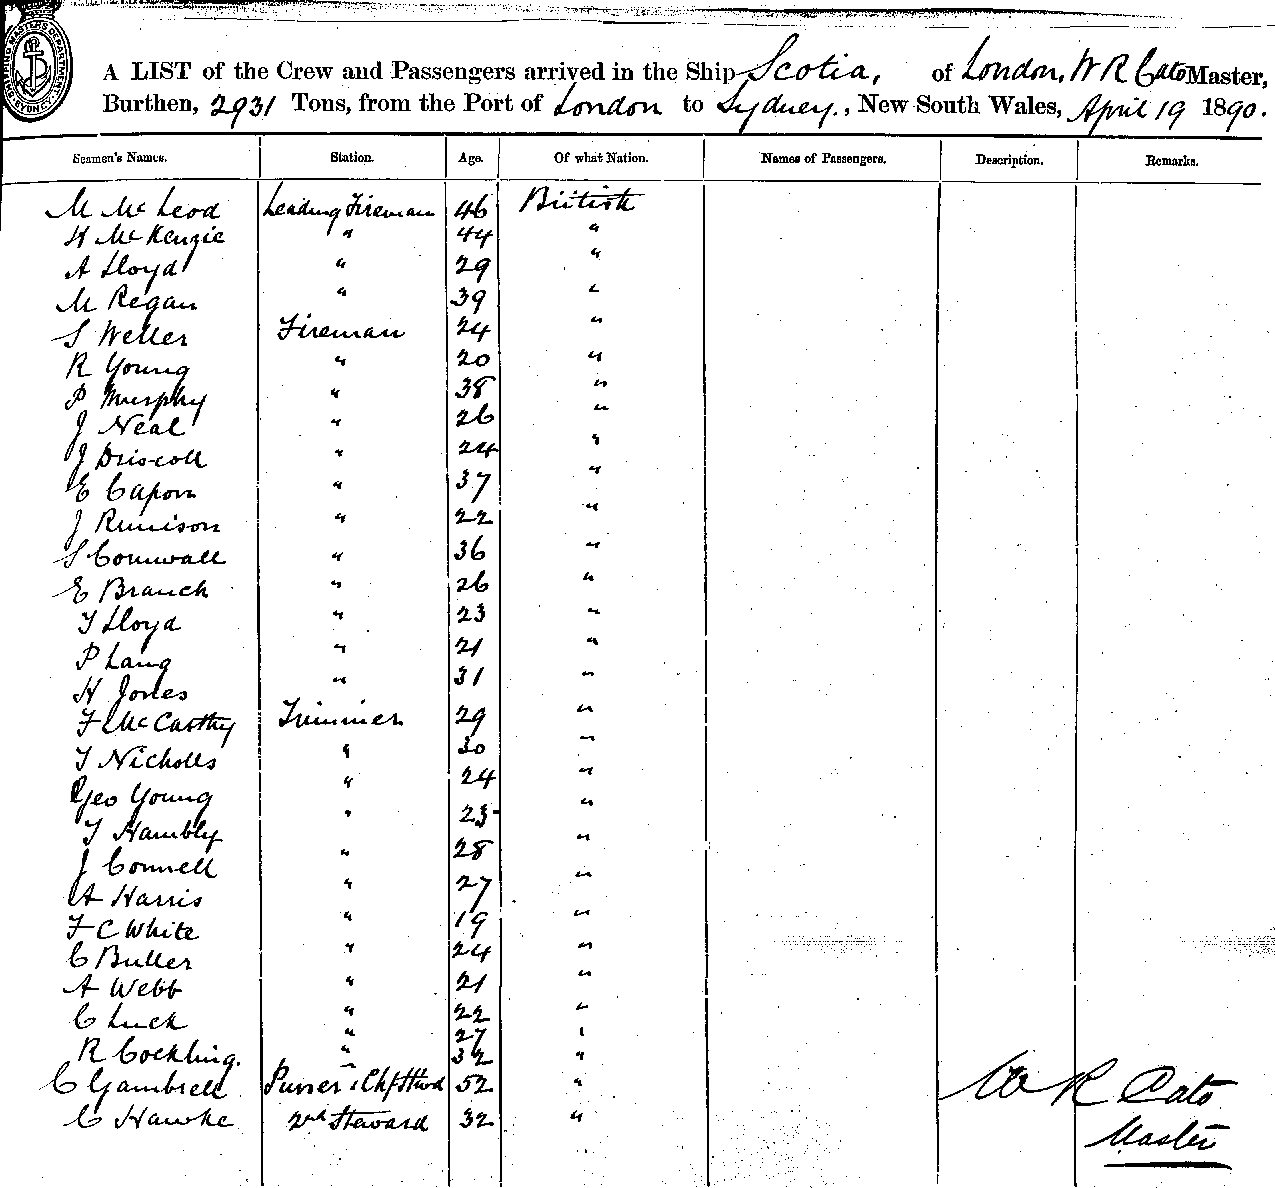 A LIST of the Crew and Passengers arrived in the Ship Scotia, of London, W R Cato Master,
Burthen, 2931 Tons, from the Port of London to Sydney., New South Wales, April 19 1890.
Seamen's Names. Station. Age. Of what Nation. Names of Passengers. Description. Remarks.
M McLeod Leading Fireman 46 British
H McKenzie " 44 "
A Lloyd " 29 "
M Regan " 39 "
S Weller Fireman 24 "
R Young " 20 "
P Murphy " 38 "
J Neal " 26 "
J Driscoll " 24 "
E Capon " 37 "
J " 22 "
S Cornwall " 36 "
E Branch " 26 "
T Lloyd " 23 "
P Lang " 21 "
H Jones " 31 "
F McCarthy Trimmer 29 "
T Nicholls " 30 "
Geo Young " 24 "
T Hambly " 23 "
J Connell " 28 "
A Harris " 27 "
F C White " 19 "
C Buller " 24 "
A Webb " 21 "
C Luck " 22 "
" 27 "
R Cockling. " 32 "
C Gambrell Purser & Chf Stwd 52 "
C Hawke 2nd Steward 32 "
W R Cato
Master